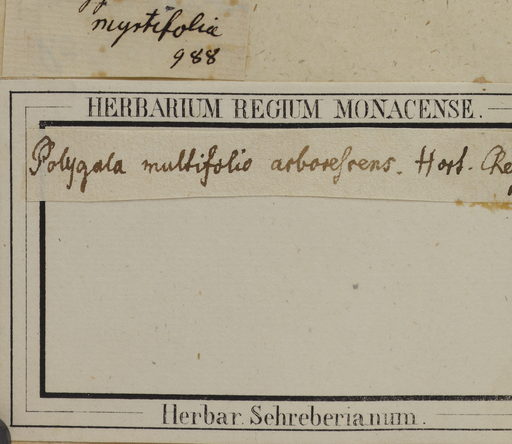 myrtifolia
988
HERBARIUM REGIUM MONACENSE.
Polygala multifolio arborescens. Hort.
Herbar. Schreberianum.